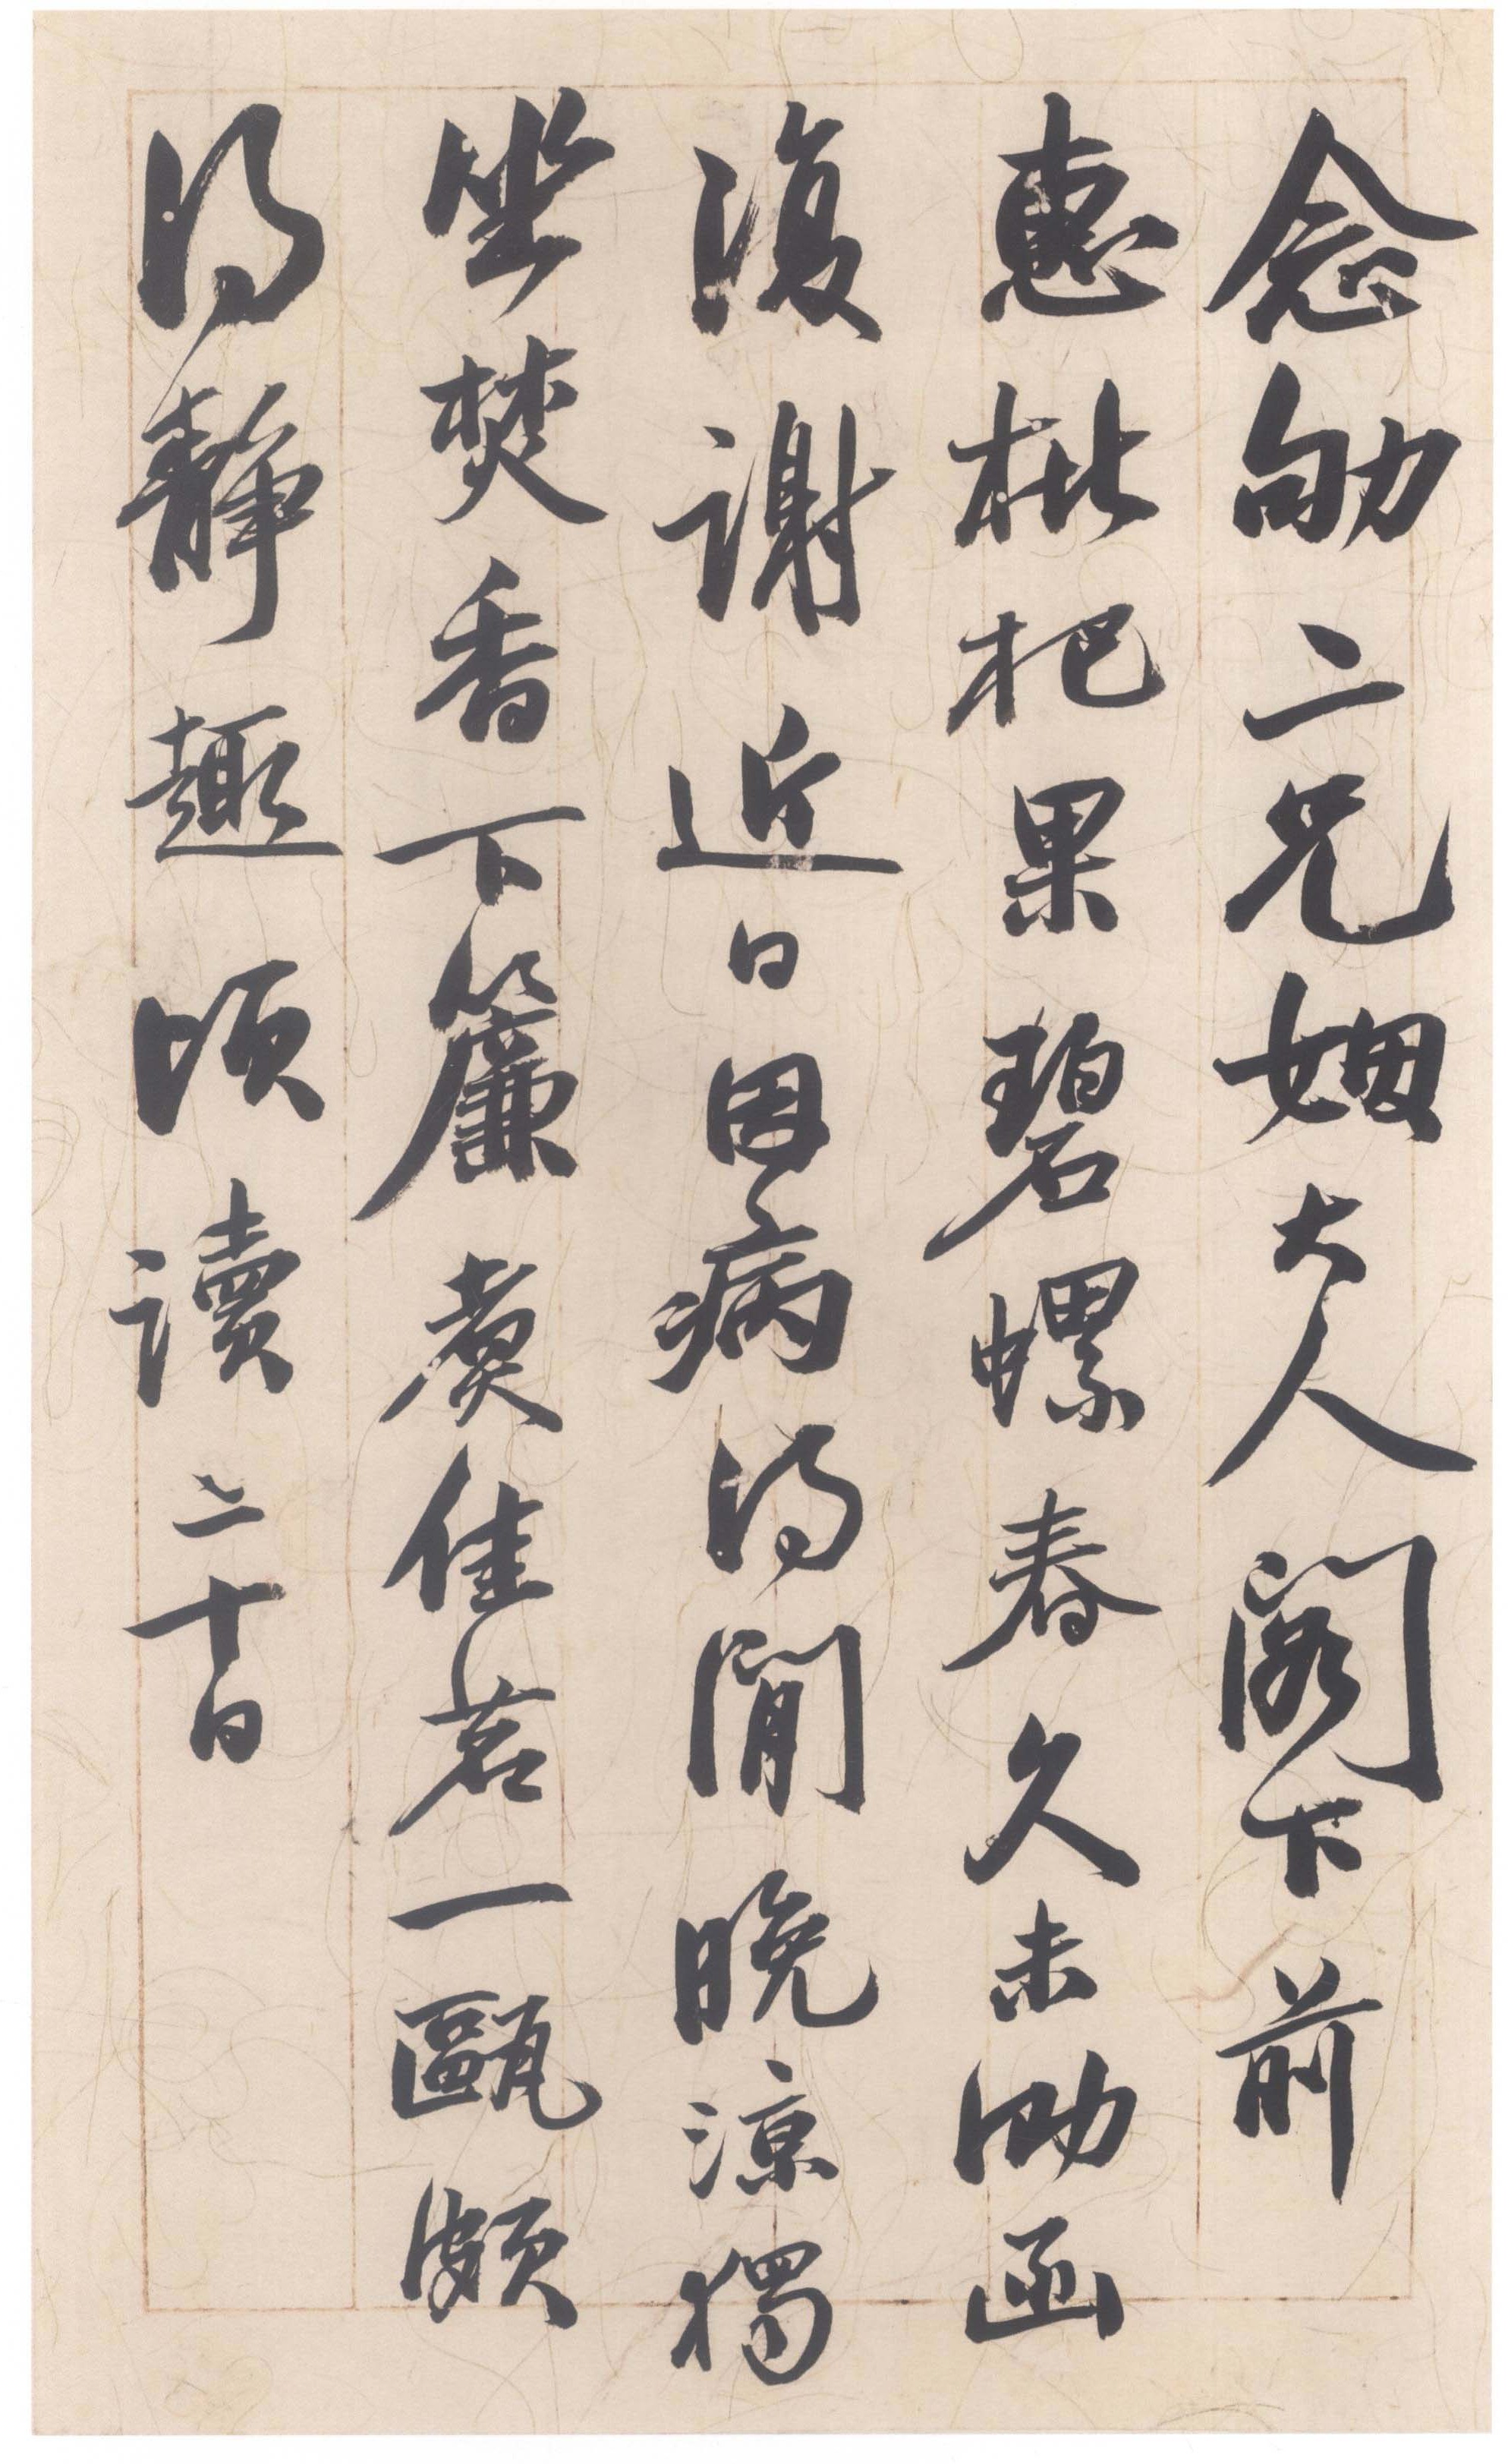 念劬二兄姻大人閣下前
惠枇杷果碧螺春久未泐函
復謝近日因病得閒晚涼獨
坐焚香下簾煑佳茗一甌頗
得靜趣頃讀二十日